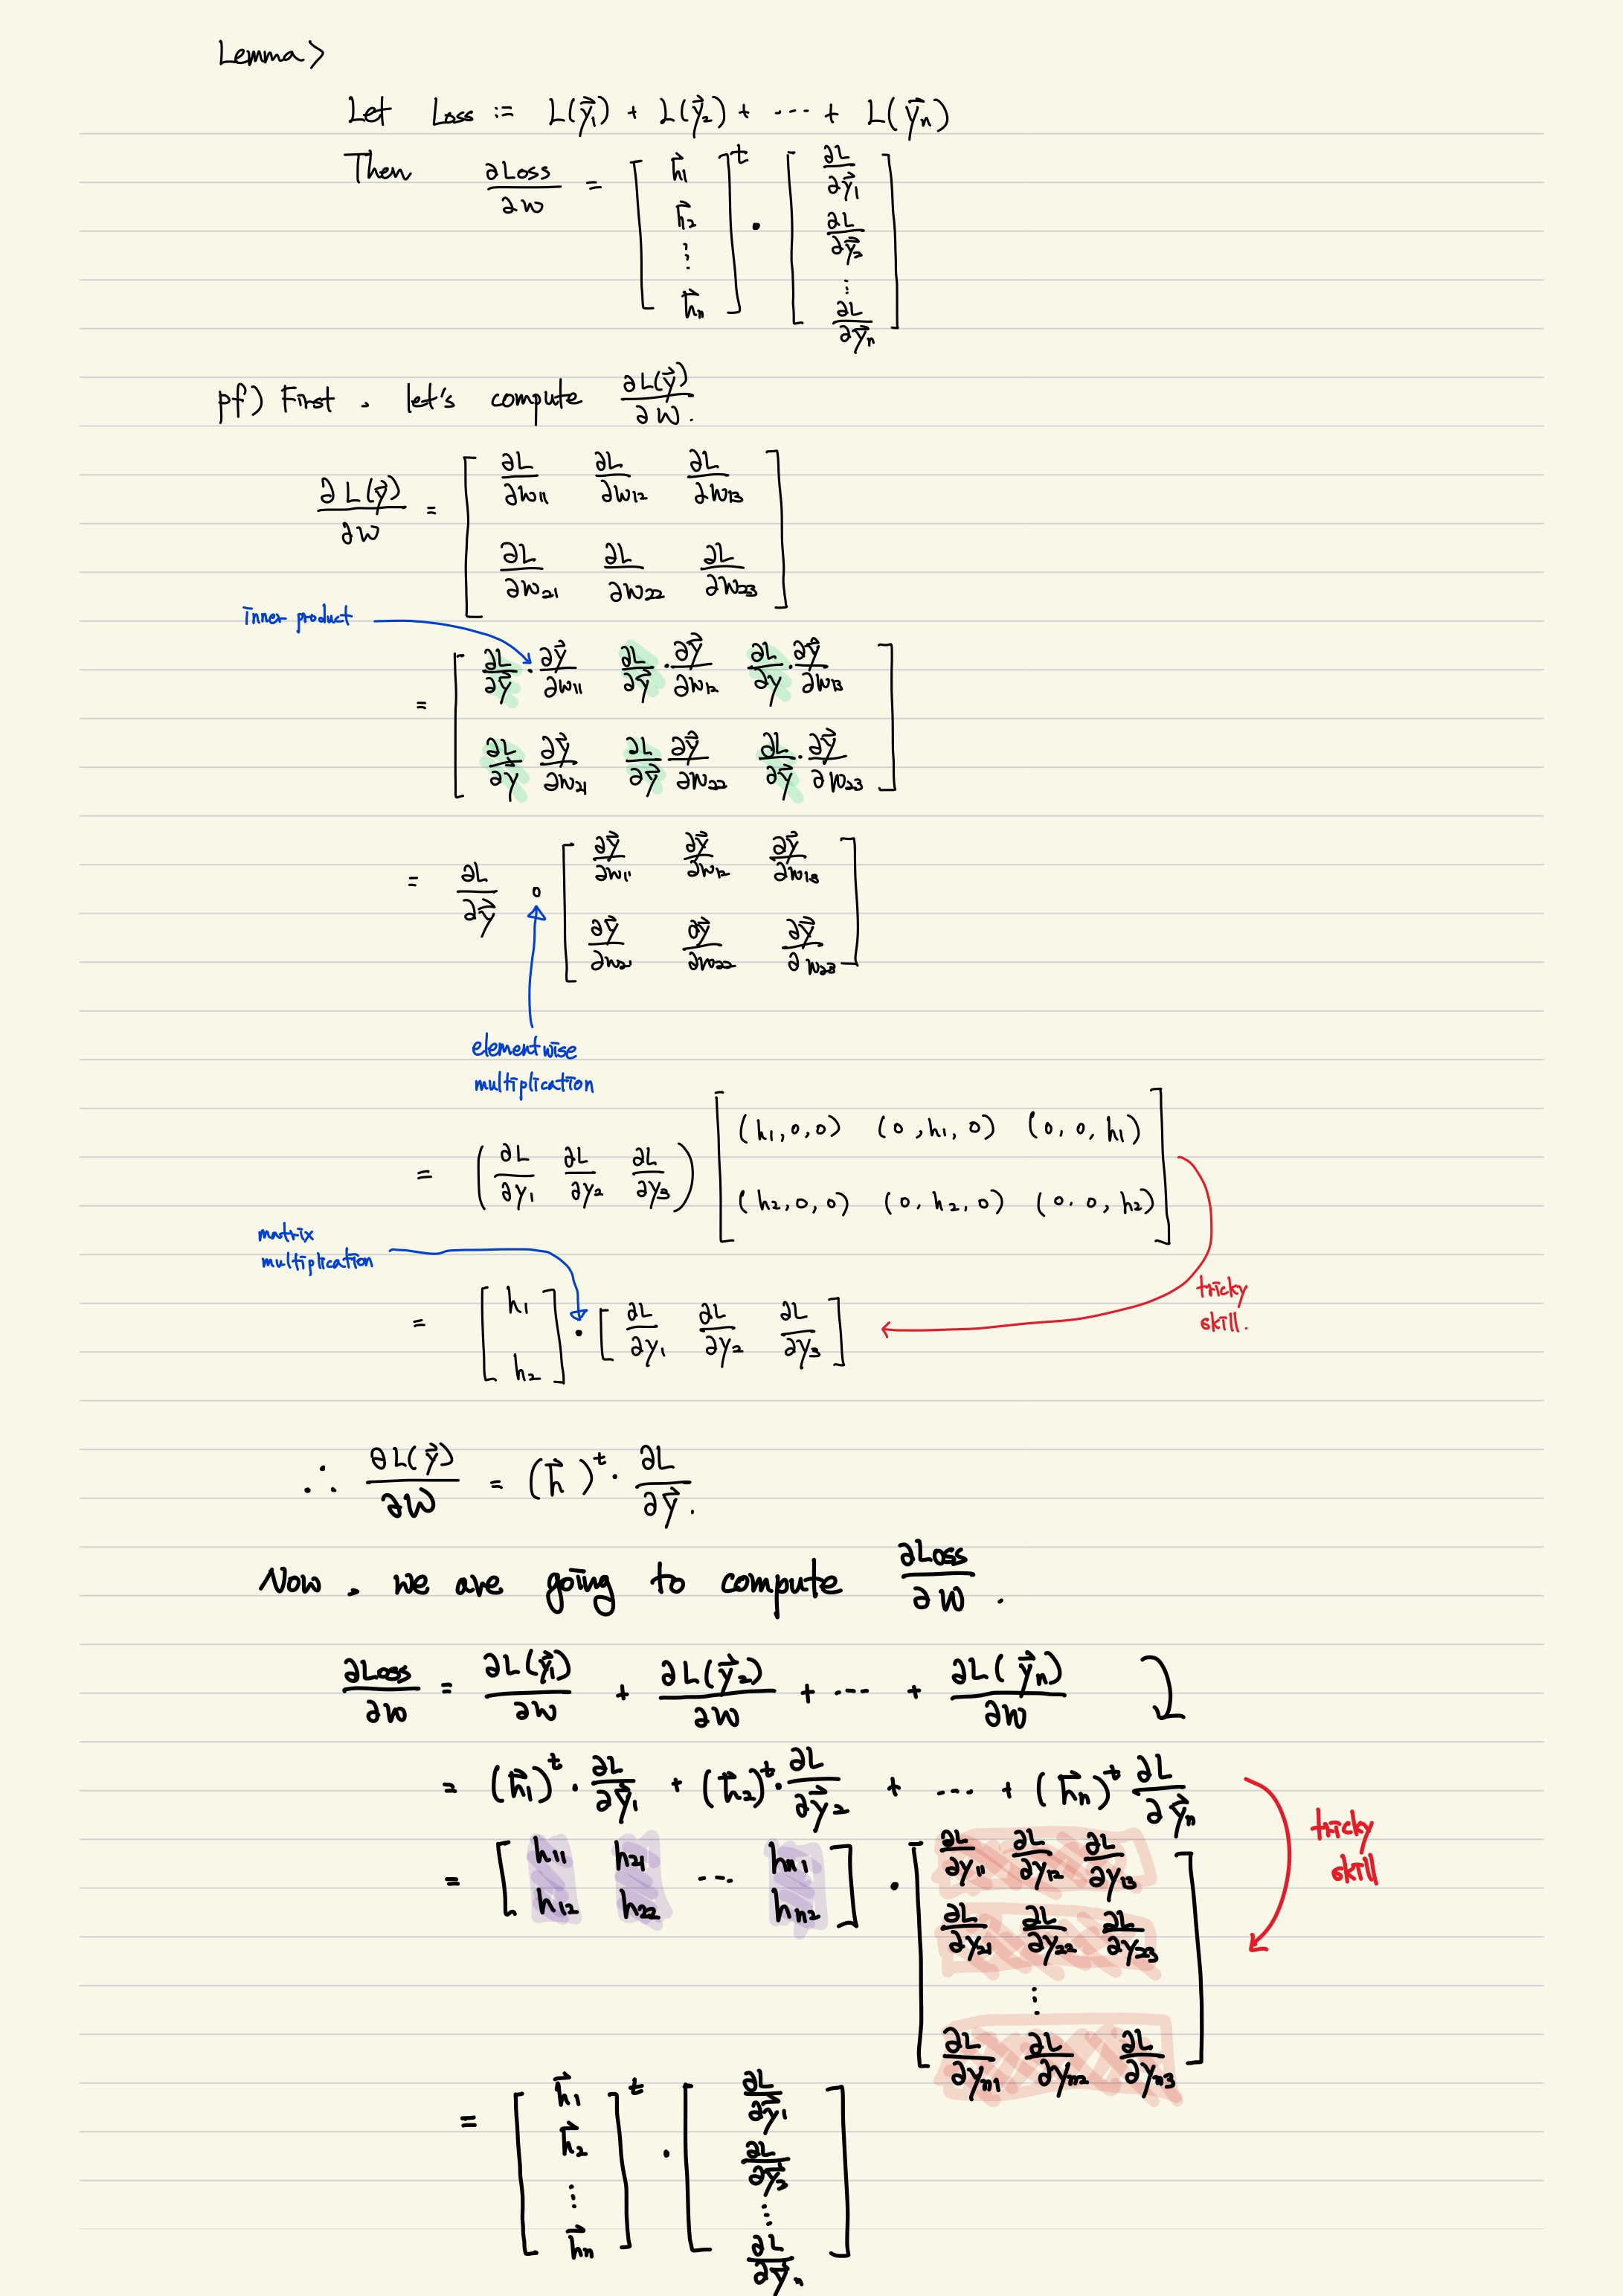 Lemma>
Let Loss := L(y⃗₁) + L(y⃗₂) + ⋯ + L(y⃗ₙ)
Then ∂Loss/∂W = [h⃗₁ h⃗₂ ⋮ h⃗ₙ]ᵗ · [∂L/∂y⃗₁ ∂L/∂y⃗₂ ⋮ ∂L/∂y⃗ₙ]
pf) First. let's compute ∂L(y⃗)/∂W.
∂L(y⃗)/∂W = [∂L/∂w₁₁ ∂L/∂w₁₂ ∂L/∂w₁₃
∂L/∂w₂₁ ∂L/∂w₂₂ ∂L/∂w₂₃]
inner product
= [∂L/∂y⃗ · ∂y⃗/∂w₁₁ ∂L/∂y⃗ · ∂y⃗/∂w₁₂ ∂L/∂y · ∂y⃗/∂w₁₃
∂L/∂y⃗ ∂y⃗/∂w₂₁ ∂L/∂y⃗ ∂y⃗/∂w₂₂ ∂L/∂y⃗ · ∂y⃗/∂w₂₃]
= ∂L/∂y⃗ ∘ [∂y⃗/∂w₁₁ ∂y⃗/∂w₁₂ ∂y⃗/∂w₁₃
∂y⃗/∂w₂₁ ∂y⃗/∂w₂₂ ∂y⃗/∂w₂₃]
elementwise
multiplication
= (∂L/∂y₁ ∂L/∂y₂ ∂L/∂y₃) [(h₁, 0, 0) (0, h₁, 0) (0, 0, h₁)
(h₂, 0, 0) (0, h₂, 0) (0. 0, h₂)]
matrix
multiplication
tricky
skill.
= [h₁ h₂] · [∂L/∂y₁ ∂L/∂y₂ ∂L/∂y₃]
∴ ∂L(y⃗)/∂W = (h⃗)ᵗ · ∂L/∂y⃗.
Now. we are going to compute ∂Loss/∂W.
∂Loss/∂W = ∂L(y⃗₁)/∂W + ∂L(y⃗₂)/∂W + ⋯ + ∂L(y⃗ₙ)/∂W
= (h⃗₁)ᵗ · ∂L/∂y⃗₁ + (h⃗₂)ᵗ · ∂L/∂y⃗₂ + ⋯ + (h⃗ₙ)ᵗ ∂L/∂y⃗ₙ
tricky
skill
= [h₁₁ h₂₁ ⋯ hₙ₁
h₁₂ h₂₂ hₙ₂] · [∂L/∂y₁₁ ∂L/∂y₁₂ ∂L/∂y₁₃
∂L/∂y₂₁ ∂L/∂y₂₂ ∂L/∂y₂₃
⋮
∂L/∂yₙ₁ ∂L/∂yₙ₂ ∂L/∂yₙ₃]
= [h⃗₁ h⃗₂ ⋮ h⃗ₙ]ᵗ · [∂L/∂y⃗₁ ∂L/∂y⃗₂ ⋮ ∂L/∂y⃗ₙ]